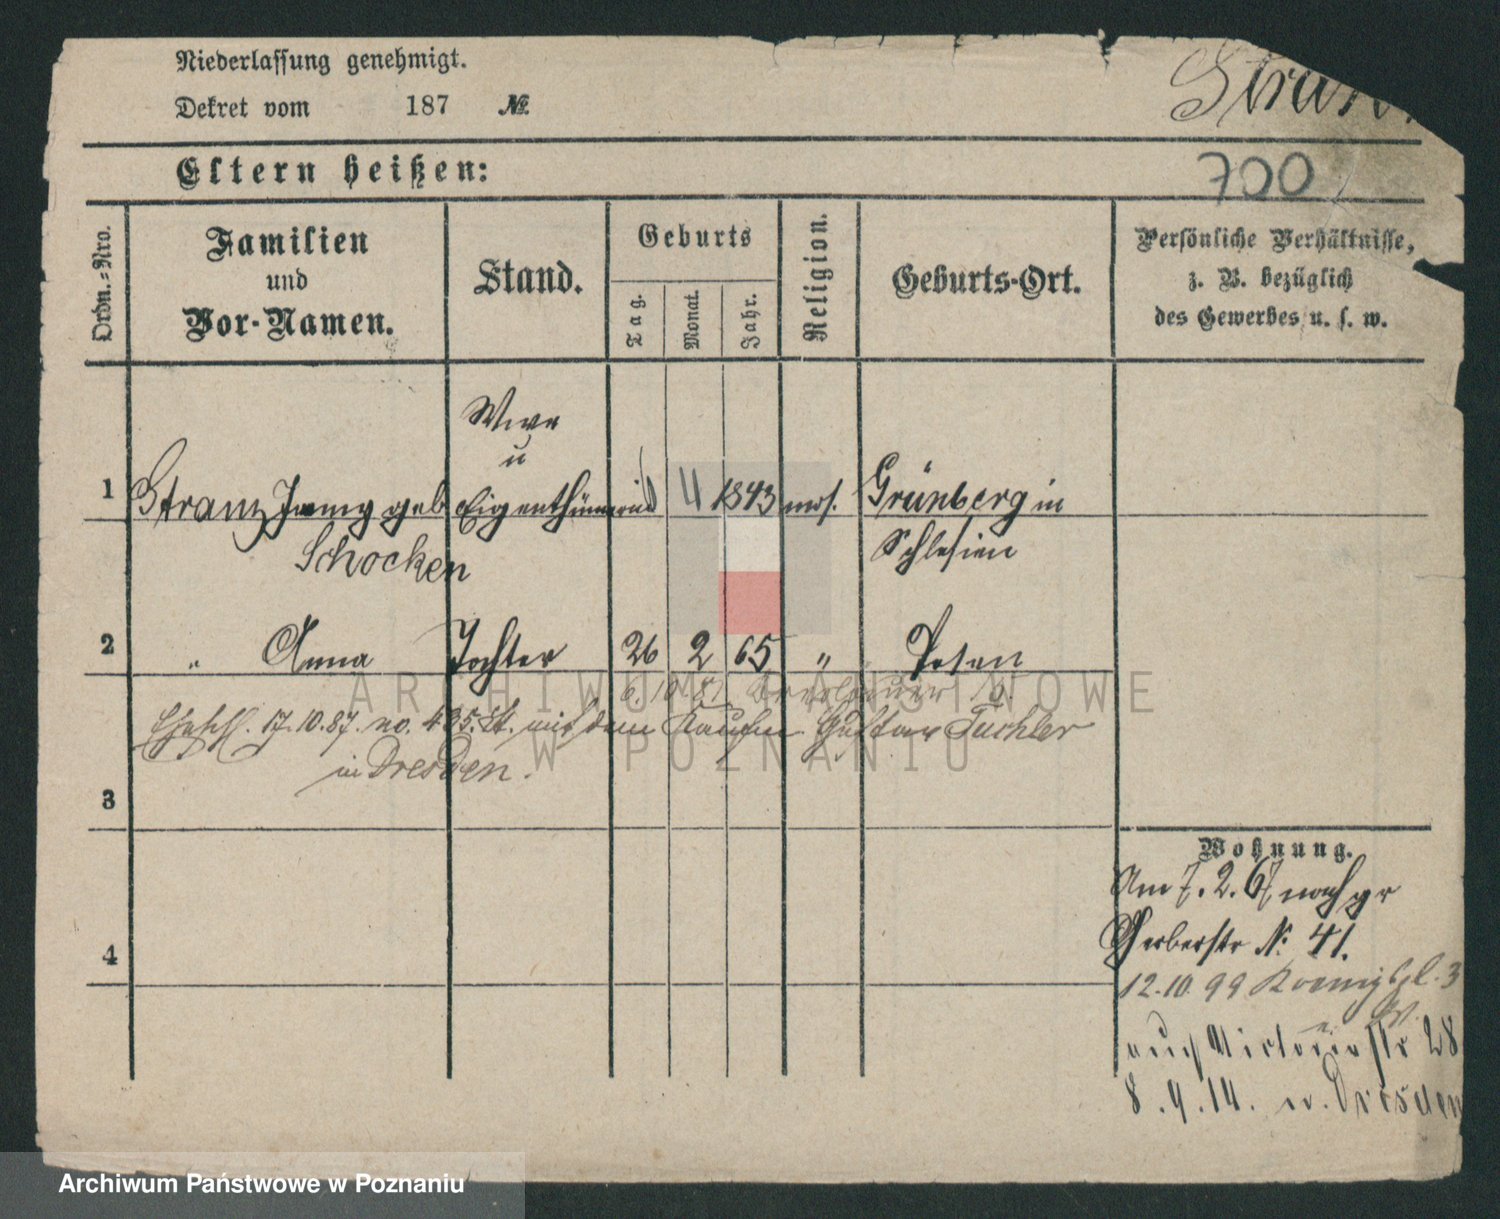 Niederlassung genehmigt.
Dekret vom 187 №
Stranz
700
Eltern heißen:
Ordn.-Nro.
Familien und Vor-Namen.
Stand.
Geburts
Tag.
Monat.
Jahr.
Religion.
Geburts-Ort.
Persönliche Verhältnisse,
z. B. bezüglich
des Gewerbes u. s. w.
Wwe
u
1 Stranz Jenny geb Eigenthümerin 4 1843 mos. Grünberg in
Schocken Schlesien
2 " Anna Tochter 26 2 65 " Posen
6. 10. 87.
Eheschl. 17.10.87. no. 435. St. mit dem Kaufm. Gustav Tuchler
in Dresden.
3
4
Wohnung.
Am 7. 2. 67 nach gr
Gerberstr №: 41.
12.10.99 Koenigspl. 3
auch Victoriastr 28
8.9.14. n. Dresden
ARCHIWUM PAŃSTWOWE
W POZNANIU
Archiwum Państwowe w Poznaniu